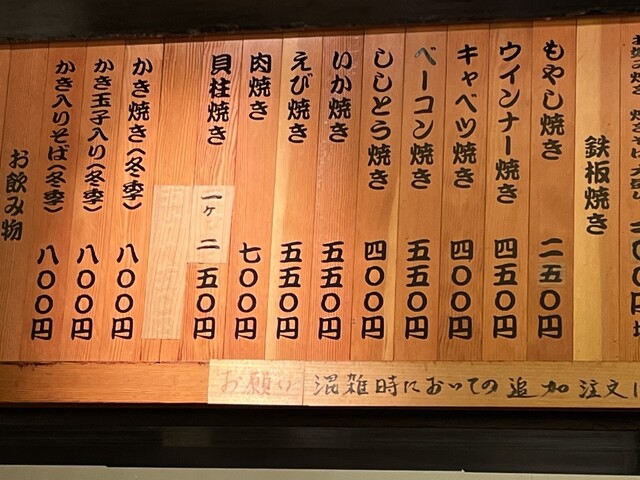 鉄板焼き
もやし焼き 二五〇円
ウインナー焼き 四五〇円
キャベツ焼き 四〇〇円
ベーコン焼き 五五〇円
ししとう焼き 四〇〇円
いか焼き 五五〇円
えび焼き 五五〇円
肉焼き 七〇〇円
貝柱焼き 一ヶ 二五〇円
かき焼き(冬季) 八〇〇円
かき玉子入り(冬季) 八〇〇円
かき入りそば(冬季) 八〇〇円
お飲み物
お願い 混雑時においての追加注文